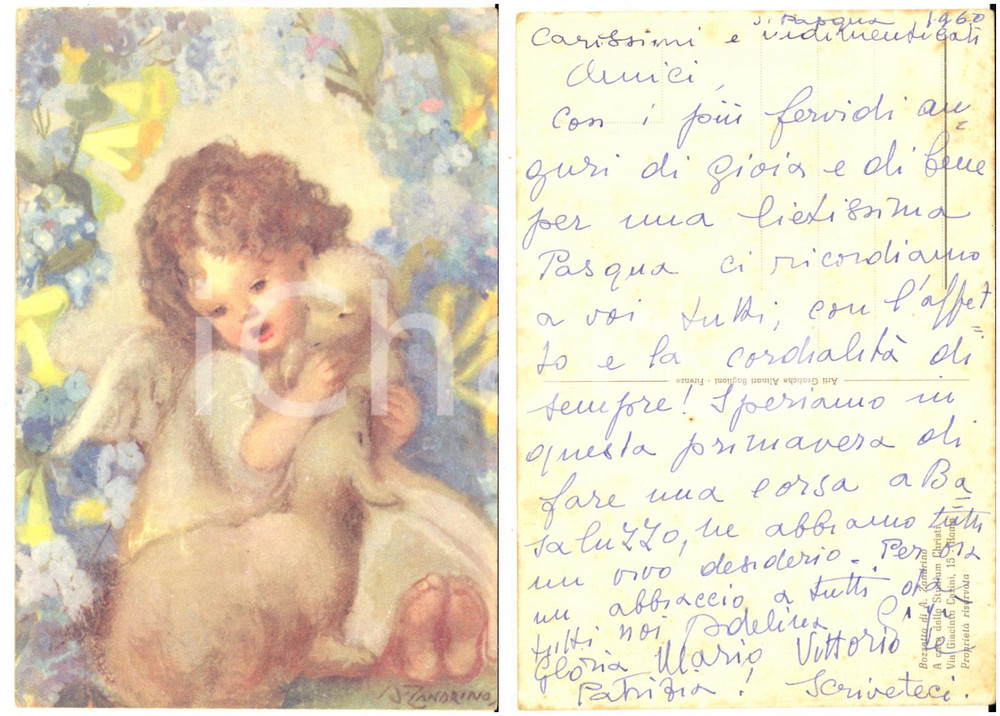 A. ZANDRINO
S. Pasqua 1960
Carissimi e indimenticati
Amici,
con i più fervidi au=
guri di gioia e di bene
per una lietissima
Pasqua ci ricordiamo
a voi tutti, con l'affet=
to e la cordialità di
sempre! Speriamo in
questa primavera di
fare una corsa a Ba=
saluzzo, ne abbiamo tutti
un vivo desiderio. Per ora
un abbraccio a tutti, da
tutti noi Adelina
Gloria Mario Vittorio e
Patrizia! Scriveteci.
Arti Grafiche Alinari Baglioni - Firenze
Bozzetto di A. Zandrino
A cura dello Studium Christi
Via Giacinto Carini, 15 - Roma
Proprietà riservata
ich